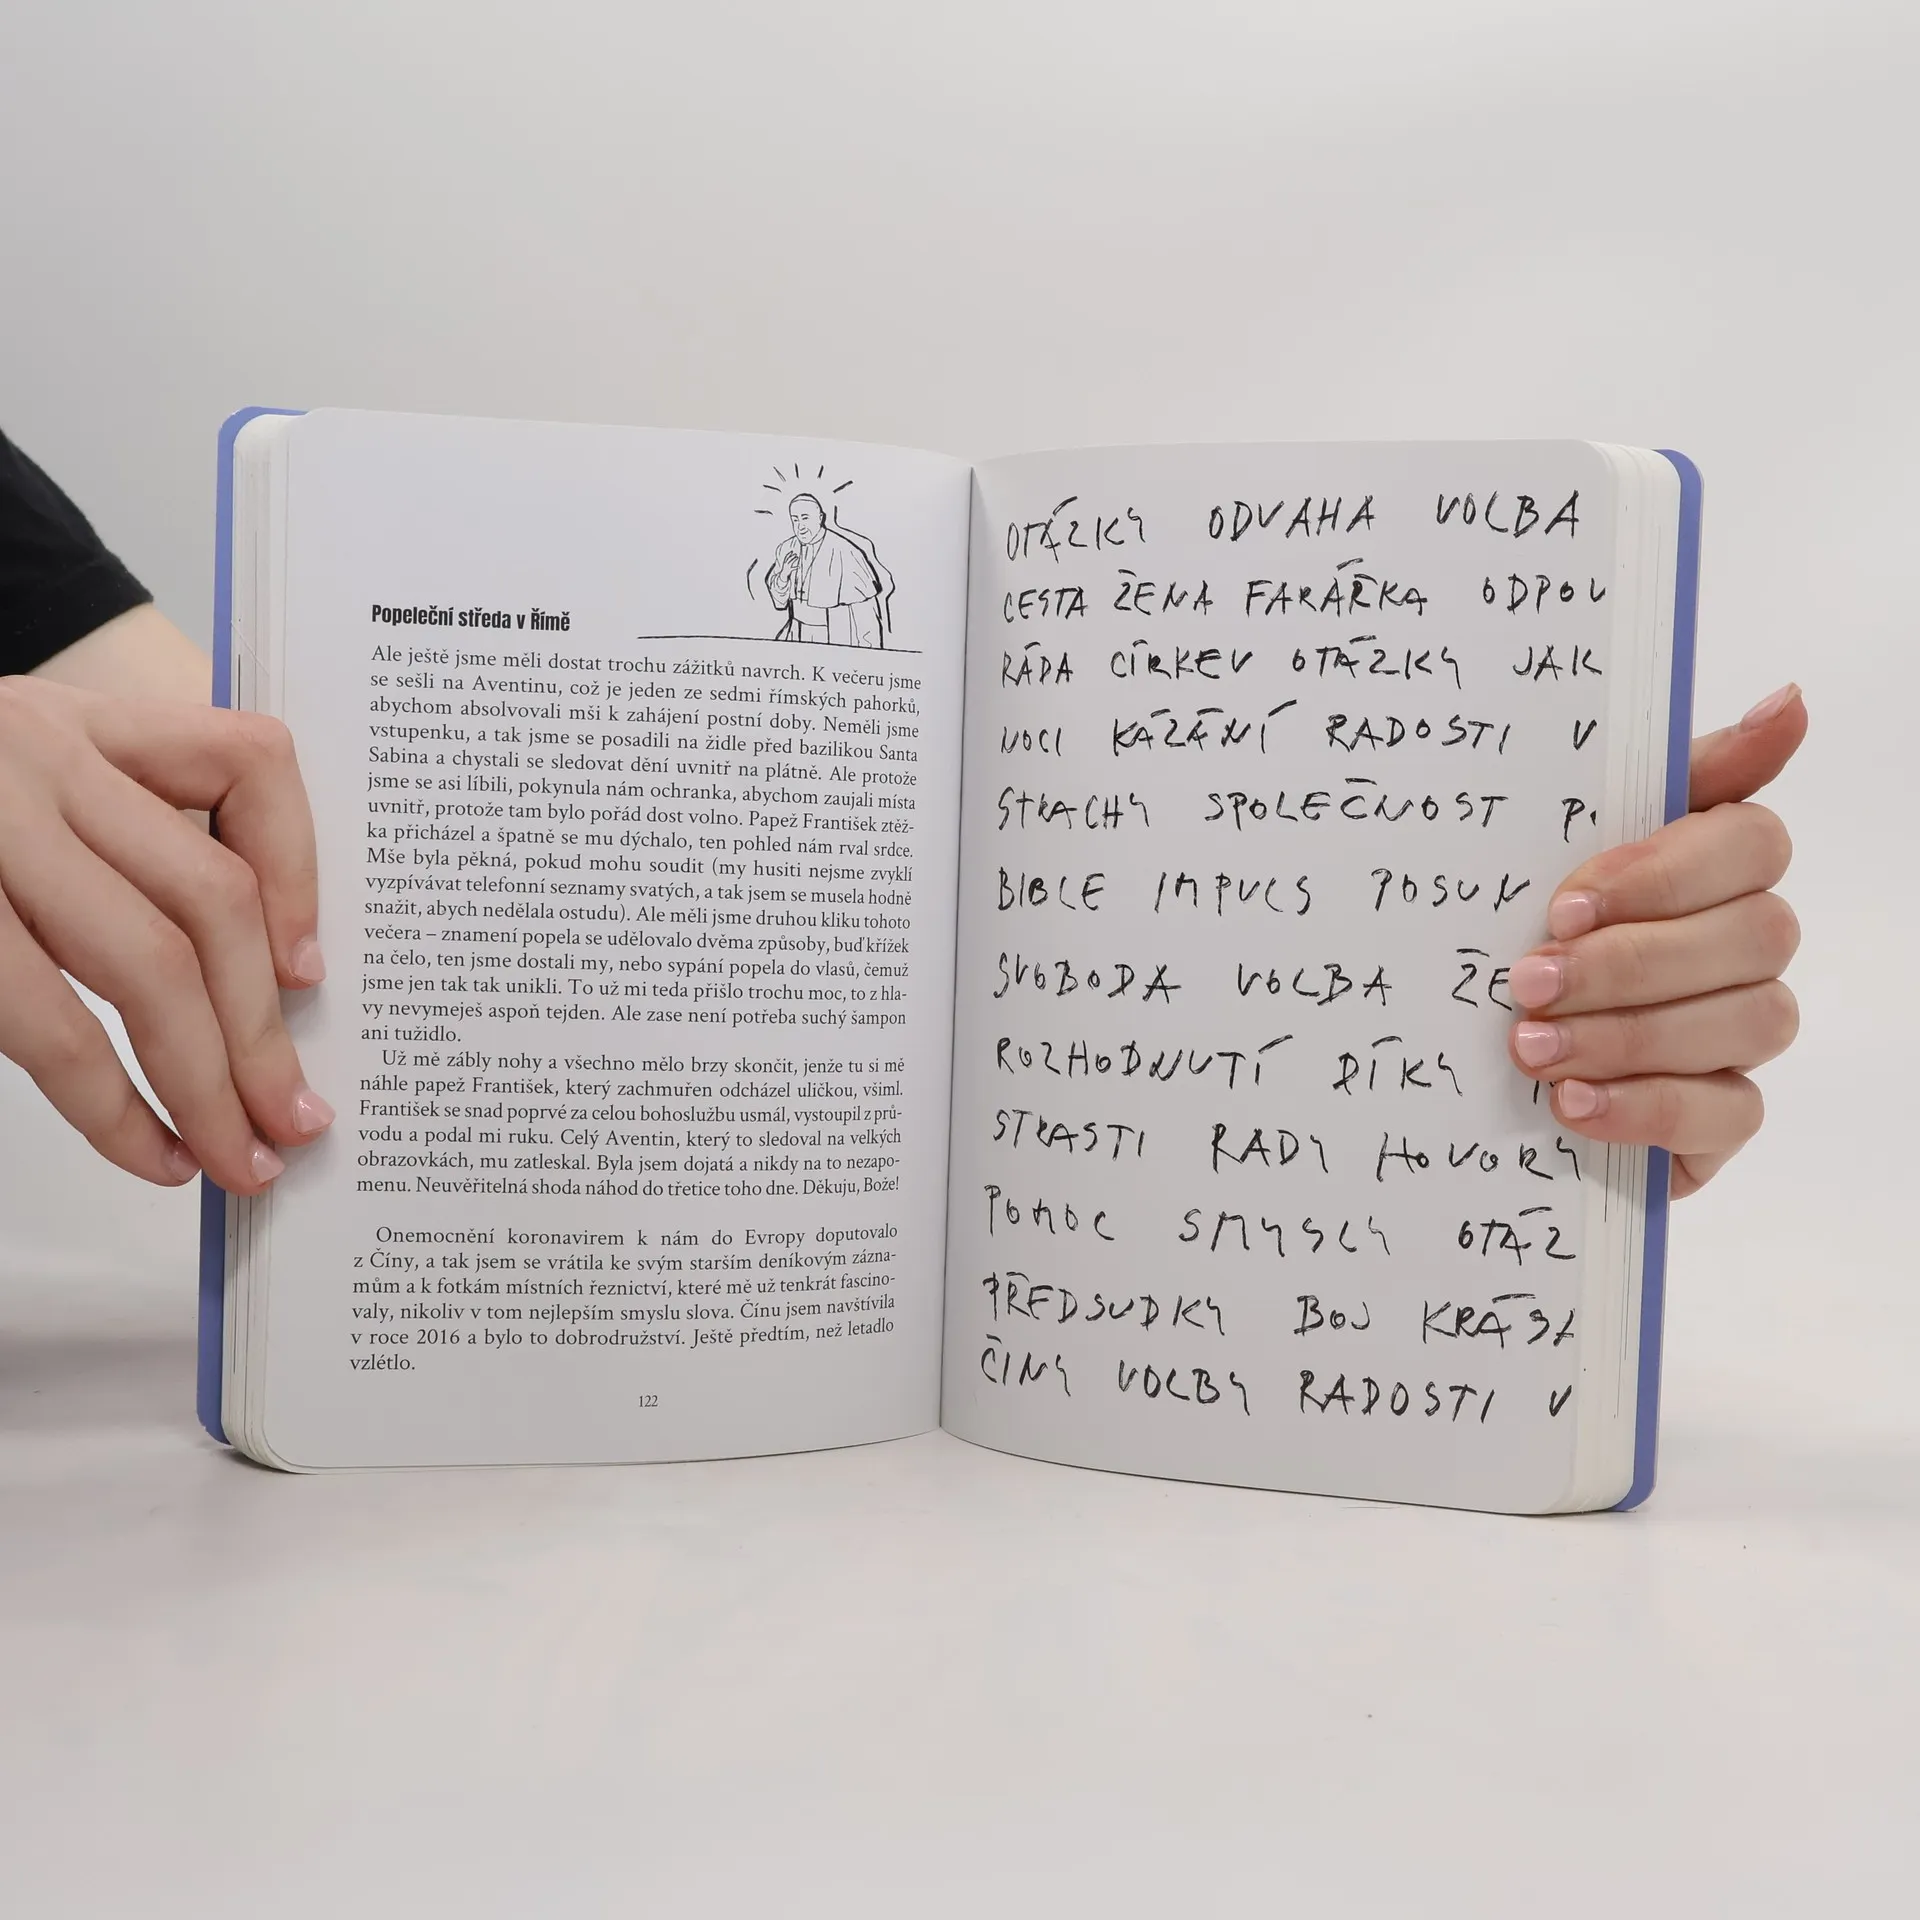 Popeleční středa v Římě
Ale ještě jsme měli dostat trochu zážitků navrch. K večeru jsme
se sešli na Aventinu, což je jeden ze sedmi římských pahorků,
abychom absolvovali mši k zahájení postní doby. Neměli jsme
vstupenku, a tak jsme se posadili na židle před bazilikou Santa
Sabina a chystali se sledovat dění uvnitř na plátně. Ale protože
jsme se asi líbili, pokynula nám ochranka, abychom zaujali místa
uvnitř, protože tam bylo pořád dost volno. Papež František ztěž-
ka přicházel a špatně se mu dýchalo, ten pohled nám rval srdce.
Mše byla pěkná, pokud mohu soudit (my husiti nejsme zvyklí
vyzpívávat telefonní seznamy svatých, a tak jsem se musela hodně
snažit, abych nedělala ostudu). Ale měli jsme druhou kliku tohoto
večera – znamení popela se udělovalo dvěma způsoby, buď křížek
na čelo, ten jsme dostali my, nebo sypání popela do vlasů, čemuž
jsme jen tak tak unikli. To už mi teda přišlo trochu moc, to z hla-
vy nevymeješ aspoň tejden. Ale zase není potřeba suchý šampon
ani tužidlo.
Už mě zábly nohy a všechno mělo brzy skončit, jenže tu si mě
náhle papež František, který zachmuřen odcházel uličkou, všiml.
František se snad poprvé za celou bohoslužbu usmál, vystoupil z prů-
vodu a podal mi ruku. Celý Aventin, který to sledoval na velkých
obrazovkách, mu zatleskal. Byla jsem dojatá a nikdy na to nezapo-
menu. Neuvěřitelná shoda náhod do třetice toho dne. Děkuju, Bože!
Onemocnění koronavirem k nám do Evropy doputovalo
z Číny, a tak jsem se vrátila ke svým starším deníkovým zázna-
mům a k fotkám místních řeznictví, které mě už tenkrát fascino-
valy, nikoliv v tom nejlepším smyslu slova. Čínu jsem navštívila
v roce 2016 a bylo to dobrodružství. Ještě předtím, než letadlo
vzlétlo.
122
OTÁZKY ODVAHA VOLBA
CESTA ŽENA FARÁŘKA ODPOV
RÁDA CÍRKEV OTÁZKY JAK
NOCI KÁZÁNÍ RADOSTI V
STRACHY SPOLEČNOST
BIBLE IMPULS POSUN
SVOBODA VOLBA ŽE
ROZHODNUTÍ DÍKY
STRASTI RADY HOVORY
POMOC SMYSLY OTÁZ
PŘEDSUDKY BOJ KRÁS
ČINY VOLBY RADOSTI V